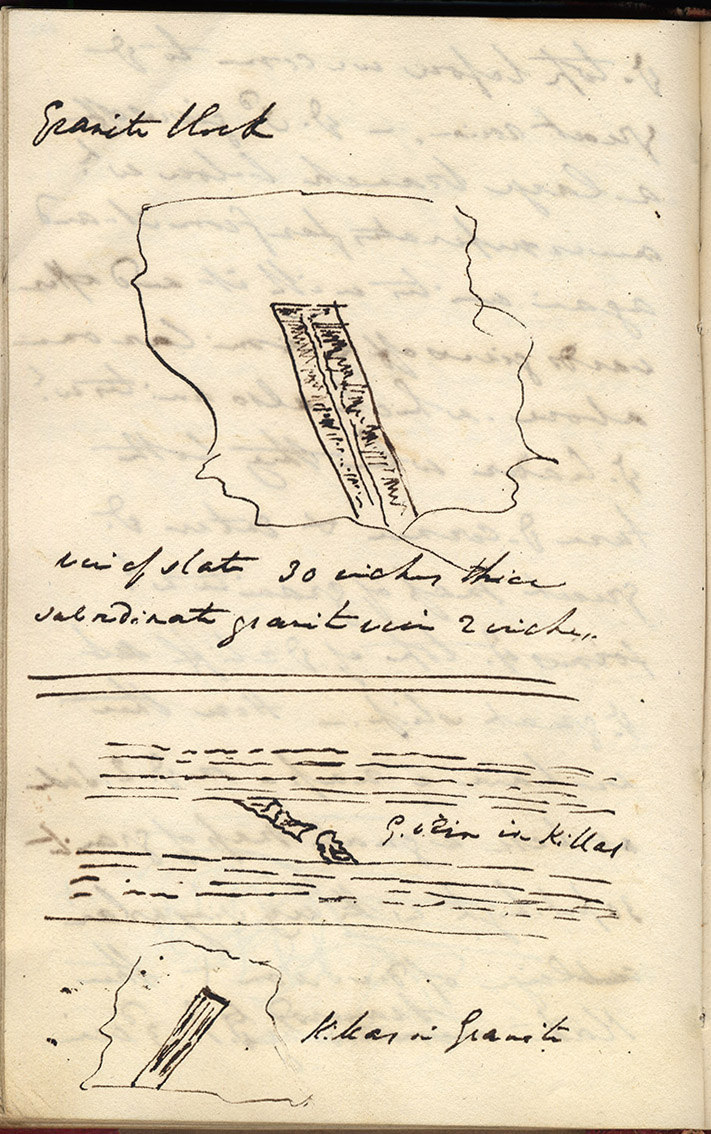 Granite block
vein of slate 30 inches thick
subordinate granite vein 2 inches
G. vein in Killas
Killas in Granite